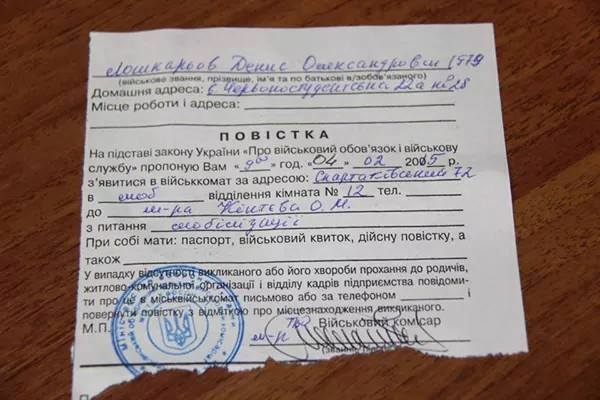 Лошкарьов Денис Олександрович 1979
(військове звання, прізвище, ім'я та по батькові в/зобов'язаного)
Домашня адреса: в. Червоностудентська 22а № 28
Місце роботи і адреса:
ПОВІСТКА
На підставі закону України «Про військовий обов'язок і військову
службу» пропоную Вам « 9⁰⁰ » год. «04» 02 2005 р.
з'явитися в військкомат за адресою: 72
в моб відділення кімната № 12 тел.
до м-ра О.М.
з питання мобілізації
При собі мати: паспорт, військовий квиток, дійсну повістку, а
також
У випадку відсутності викликаного або його хвороби прохання до родичів,
житлово-комунальної організації і відділу кадрів підприємства повідоми-
ти про це в міськвійськкомат письмово або за телефоном і
повернути повістку з відміткою про місцезнаходження викликаного.
М.П. Військовий комісар
м-р